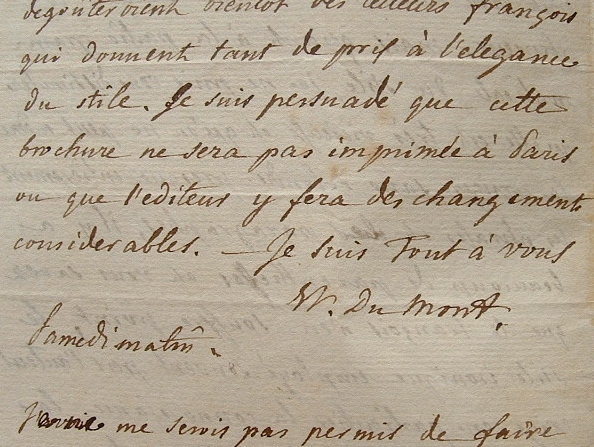 degouteroient bientot des lecteurs françois
qui donnent tant de prix à l'elegance
du stile. Je suis persuadé que cette
brochure ne sera pas imprimée à Paris
ou que l'editeur y fera des changements
considerables. — Je suis Tout à vous
Du Mont.
Samedi matin.
me serois pas permis de faire